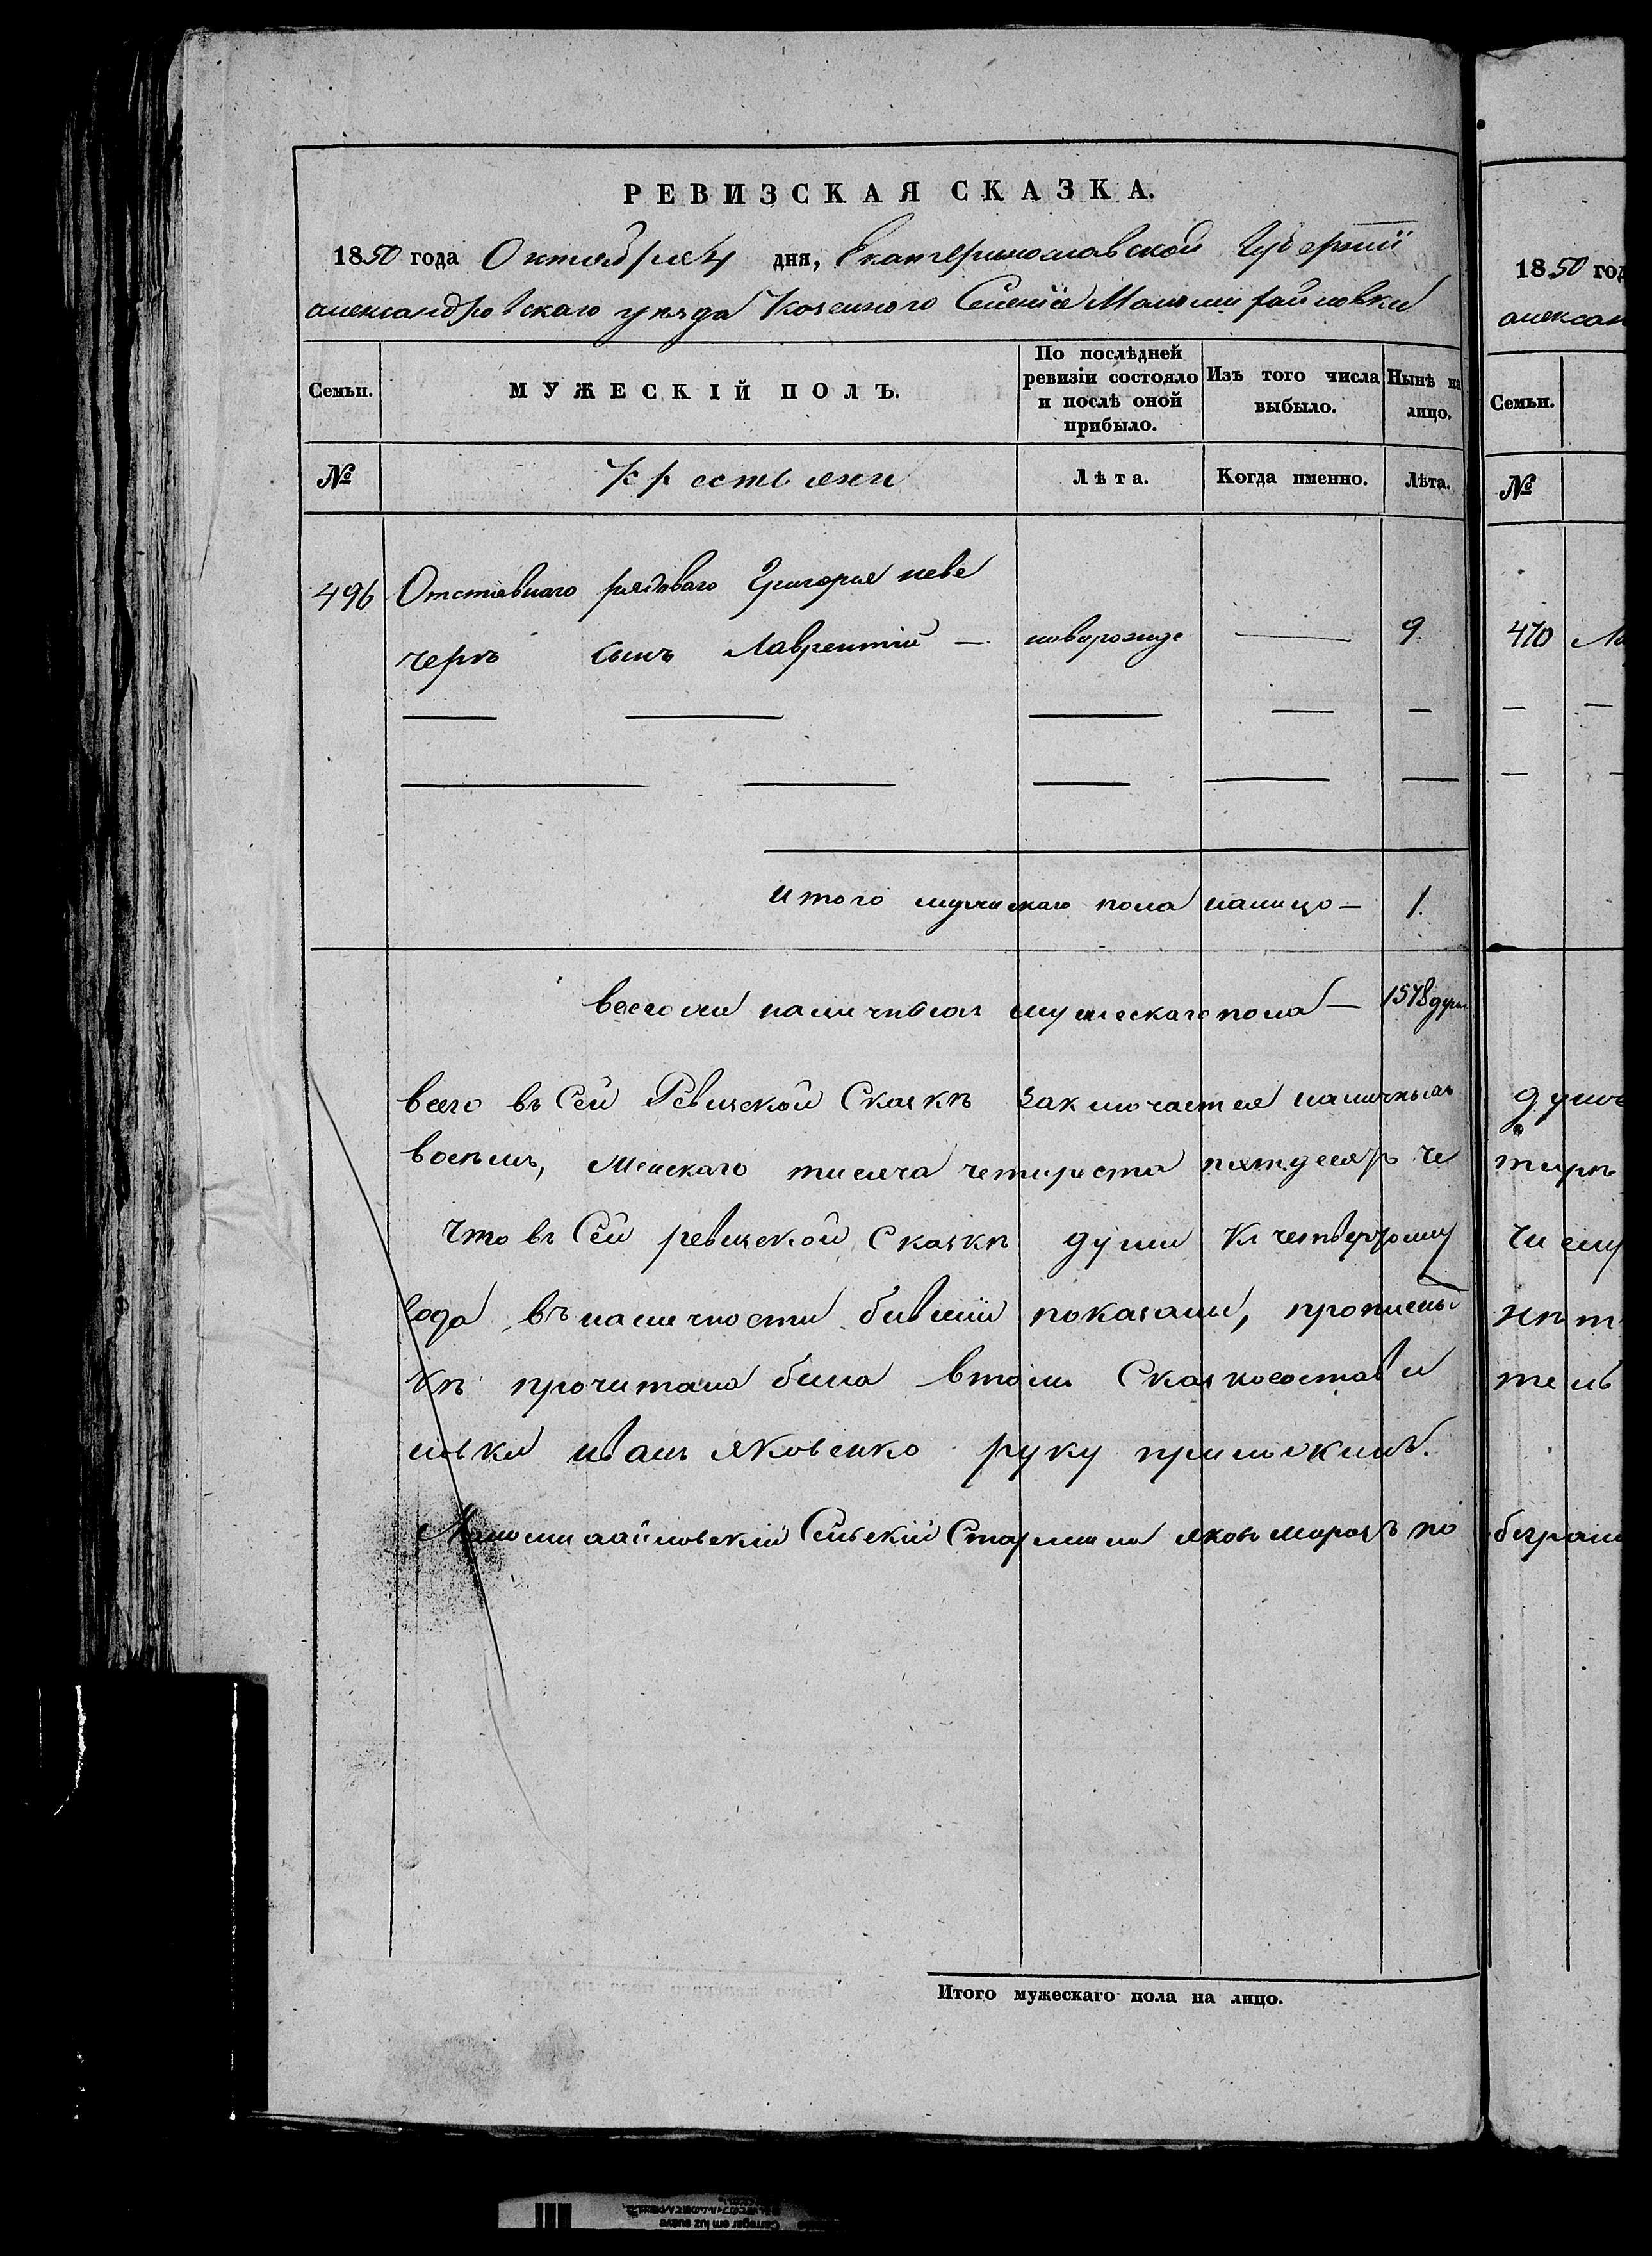 РЕВИЗСКАЯ СКАЗКА.
1850 года Октября 4 дня, Екатеринославской Губернии
александровскаго уезда Козенного Селенія Маломихайловки
Семьи.
МУЖЕСКІЙ ПОЛЪ.
По послѣдней ревизіи состояло и послѣ оной прибыло.
Изъ того числа выбыло.
Нынѣ на лицо.
№
крестьяни
Лѣта.
Когда именно.
Лѣта.
496 Отставнаго рядоваго Григория неве
черъ сынъ Лаврентій — новорожде — 9.
итого мужескаго пола налицо — 1.
всего наличныхъ мужескаго пола — 1578 душ
всего въ Сей Ревизской Сказкѣ заключается наличныхъ
восемь, женскаго тисяча четиреста пятдесятъ че
что въ Сей ревизской Сказкѣ души къ четвертому
года въ наличности бившии показани, прописны
кѣ прочитана била втомъ Сказкосостави
ловки иванъ яковенко руку приложилъ.
Маломихайловский Сельский Старшина яковъ морозъ по
Итого мужескаго пола на лицо.
1850 год
алексан
Семьи.
№
470
душъ
тирѣ
числу
нѣт
тель
безграм